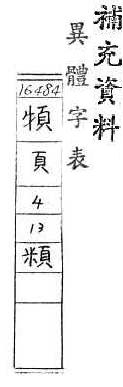 補充資料
異體字表
16484
頁
4
13
頪